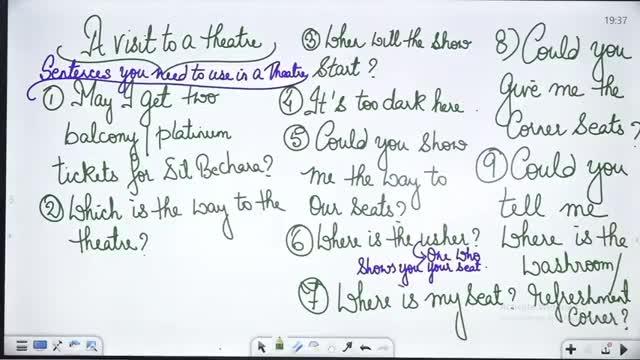 19:37
A visit to a theatre
Sentences you need to use in a Theatre
① May I get two
balcony/platinum
tickets for Dil Bechara?
② Which is the way to the
theatre?
③ When will the show
start?
④ It's too dark here.
⑤ Could you show
me the way to
our seats?
⑥ Where is the usher?
→ One who
shows you your seat.
⑦ Where is my seat?
8) Could you
give me the
Corner Seats?
⑨ Could you
tell me
where is the
washroom/
refreshment
corner?